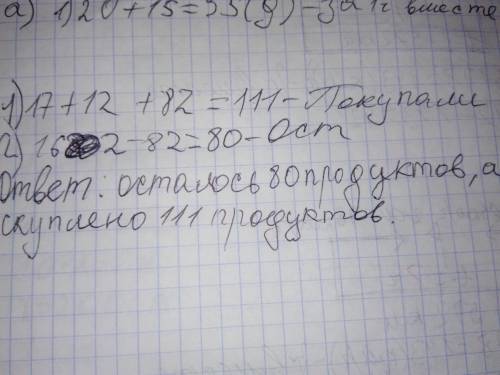 а) 1) 20 + 15 = 35 (д) - за 1 ч вместе
1) 17 + 12 + 82 = 111 - Покупали
2) 162 - 82 = 80 - Ост
Ответ: осталось 80 продуктов, а
скуплено 111 продуктов.